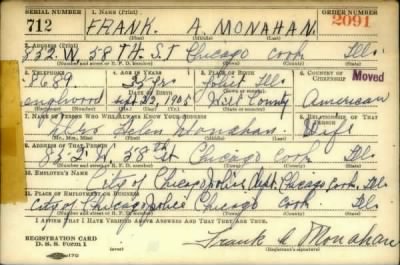 SERIAL NUMBER 1. NAME (Print) ORDER NUMBER
712 FRANK. A. MONAHAN. 2091
(First) (Middle) (Last)
2. ADDRESS (Print)
832. W. 58 TH. S.T Chicago Cook Ills
(Number and street or R. F. D. number) (Town) (County) (State)
3. TELEPHONE 4. AGE IN YEARS 5. PLACE OF BIRTH 6. COUNTRY OF CITIZENSHIP Moved
8689 Joliet Ills
DATE OF BIRTH
Englewood Sept 23, 1905 Will County American
7. NAME OF PERSON WHO WILL ALWAYS KNOW YOUR ADDRESS 8. RELATIONSHIP OF THAT PERSON
Mrs Helen Monahan. Wife
(Mr., Mrs., Miss) (First) (Middle) (Last)
9. ADDRESS OF THAT PERSON
832 W. 58th St Chicago Cook Ills
(Number and street or R. F. D. number) (Town) (County) (State)
10. EMPLOYER'S NAME
City of Chicago police Dept. Chicago Cook. Ills
11. PLACE OF EMPLOYMENT OR BUSINESS
City of Chicago police Chicago Cook Ills
(Number and street or R. F. D. number) (Town) (County) (State)
I AFFIRM THAT I HAVE VERIFIED ABOVE ANSWERS AND THAT THEY ARE TRUE.
REGISTRATION CARD
D. S. S. Form 1 Frank A Monahan
(Registrant's signature)